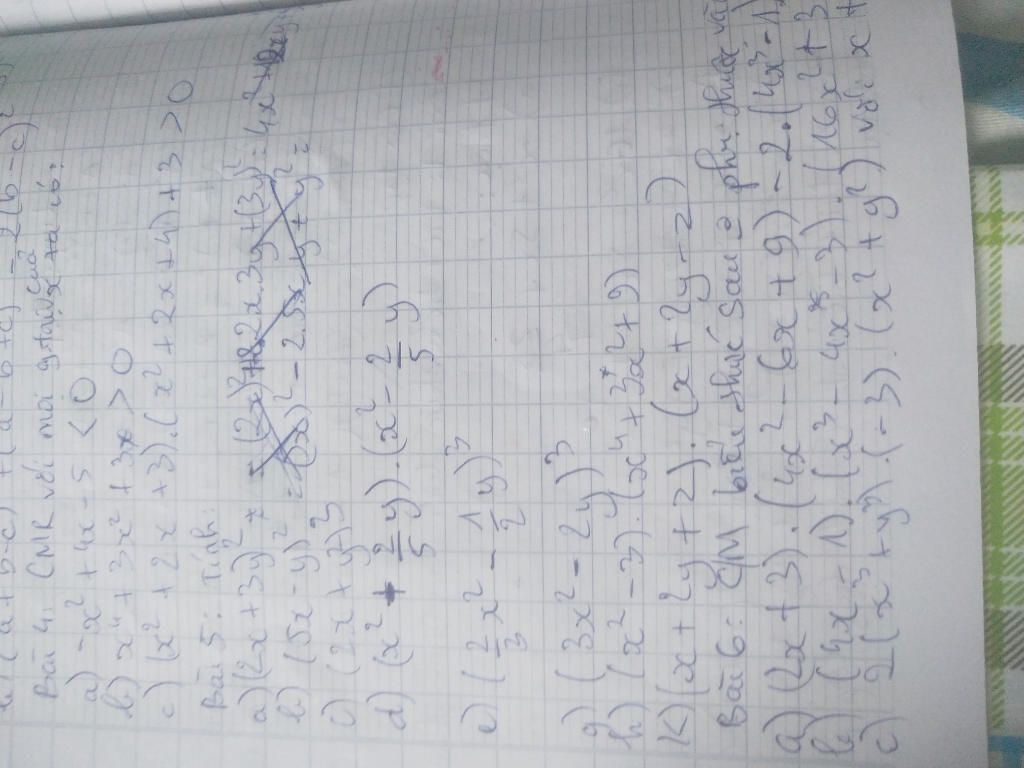 (a+b-c) + (a-b+c) - 2(b-c)
Bài 4: CMR với mọi giá trị của x ta có:
a) -x² + 4x - 5 < 0
b) x⁴ + 3x² + 3 > 0
c) (x² + 2x + 3).(x² + 2x + 4) + 3 > 0
Bài 5: Tính:
a) (2x + 3y)² = (2x)² + 2.2x.3y + (3y)² = 4x² +
b) (5x - y)² = (5x)² - 2.5x.y + y² =
c) (2x + y²)³
d) (x² + 2/5 y).(x² - 2/5 y)
e) (2/3 x² - 1/2 y)³
g) (3x² - 2y)³
h) (x² - 3).(x⁴ + 3x² + 9)
K) (x + 2y + z).(x + 2y - z)
Bài 6: CM biểu thức sau phụ thuộc
a) (2x + 3).(4x² - 6x + 9) - 2.(4x³ - 1)
b) (4x - 1).(x³ - 4x - 3).(16x² + 3
c) 2(x³ + y³).(-3).(x² + y²) với x +